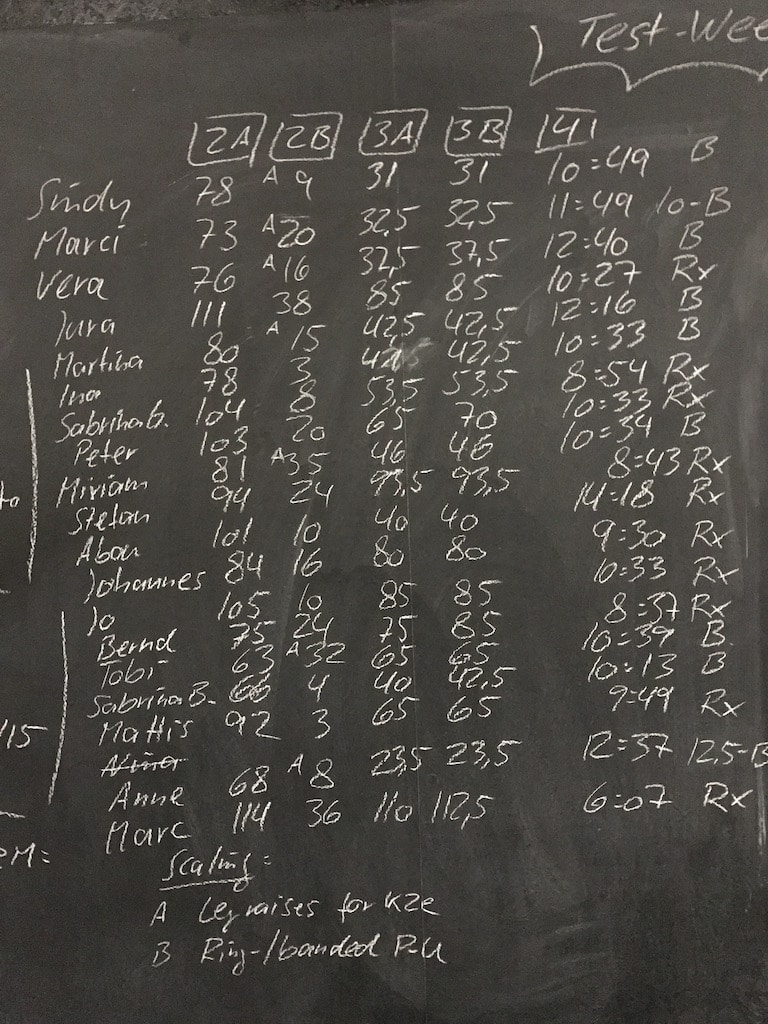 Test-Wee
2A 2B 3A 3B 4
Sindy 78 A 9 31 31 10:49 B
Marci 73 A 20 32,5 32,5 11:49 10-B
Vera 76 A 16 32,5 37,5 12:40 B
Jura 111 38 85 85 10:27 Rx
Martina 80 A 15 42,5 42,5 12:16 B
Ina 78 3 42,5 10:33 B
Sabrina G. 104 8 53,5 53,5 8:54 Rx
Peter 103 20 65 70 10:33 Rx
Miriam 81 A 35 46 46 10:34 B
Stefan 94 24 93,5 93,5 8:43 Rx
Abou 101 10 40 40 14:18 Rx
Johannes 84 16 80 80 9:30 Rx
Jo 105 10 85 85 10:33 Rx
Bernd 75 24 75 85 8:37 Rx
Tobi 63 A 32 65 65 10:39 B
Sabrina B. 66 4 40 42,5 10:13 B
Mattis 92 3 65 65 9:49 Rx
Anne 68 A 8 23,5 23,5 12:37 12,5-B
Marc 114 36 110 112,5 6:07 Rx
/15
M:
Scaling:
A Leg raises for K2e
B Ring-/banded P-U